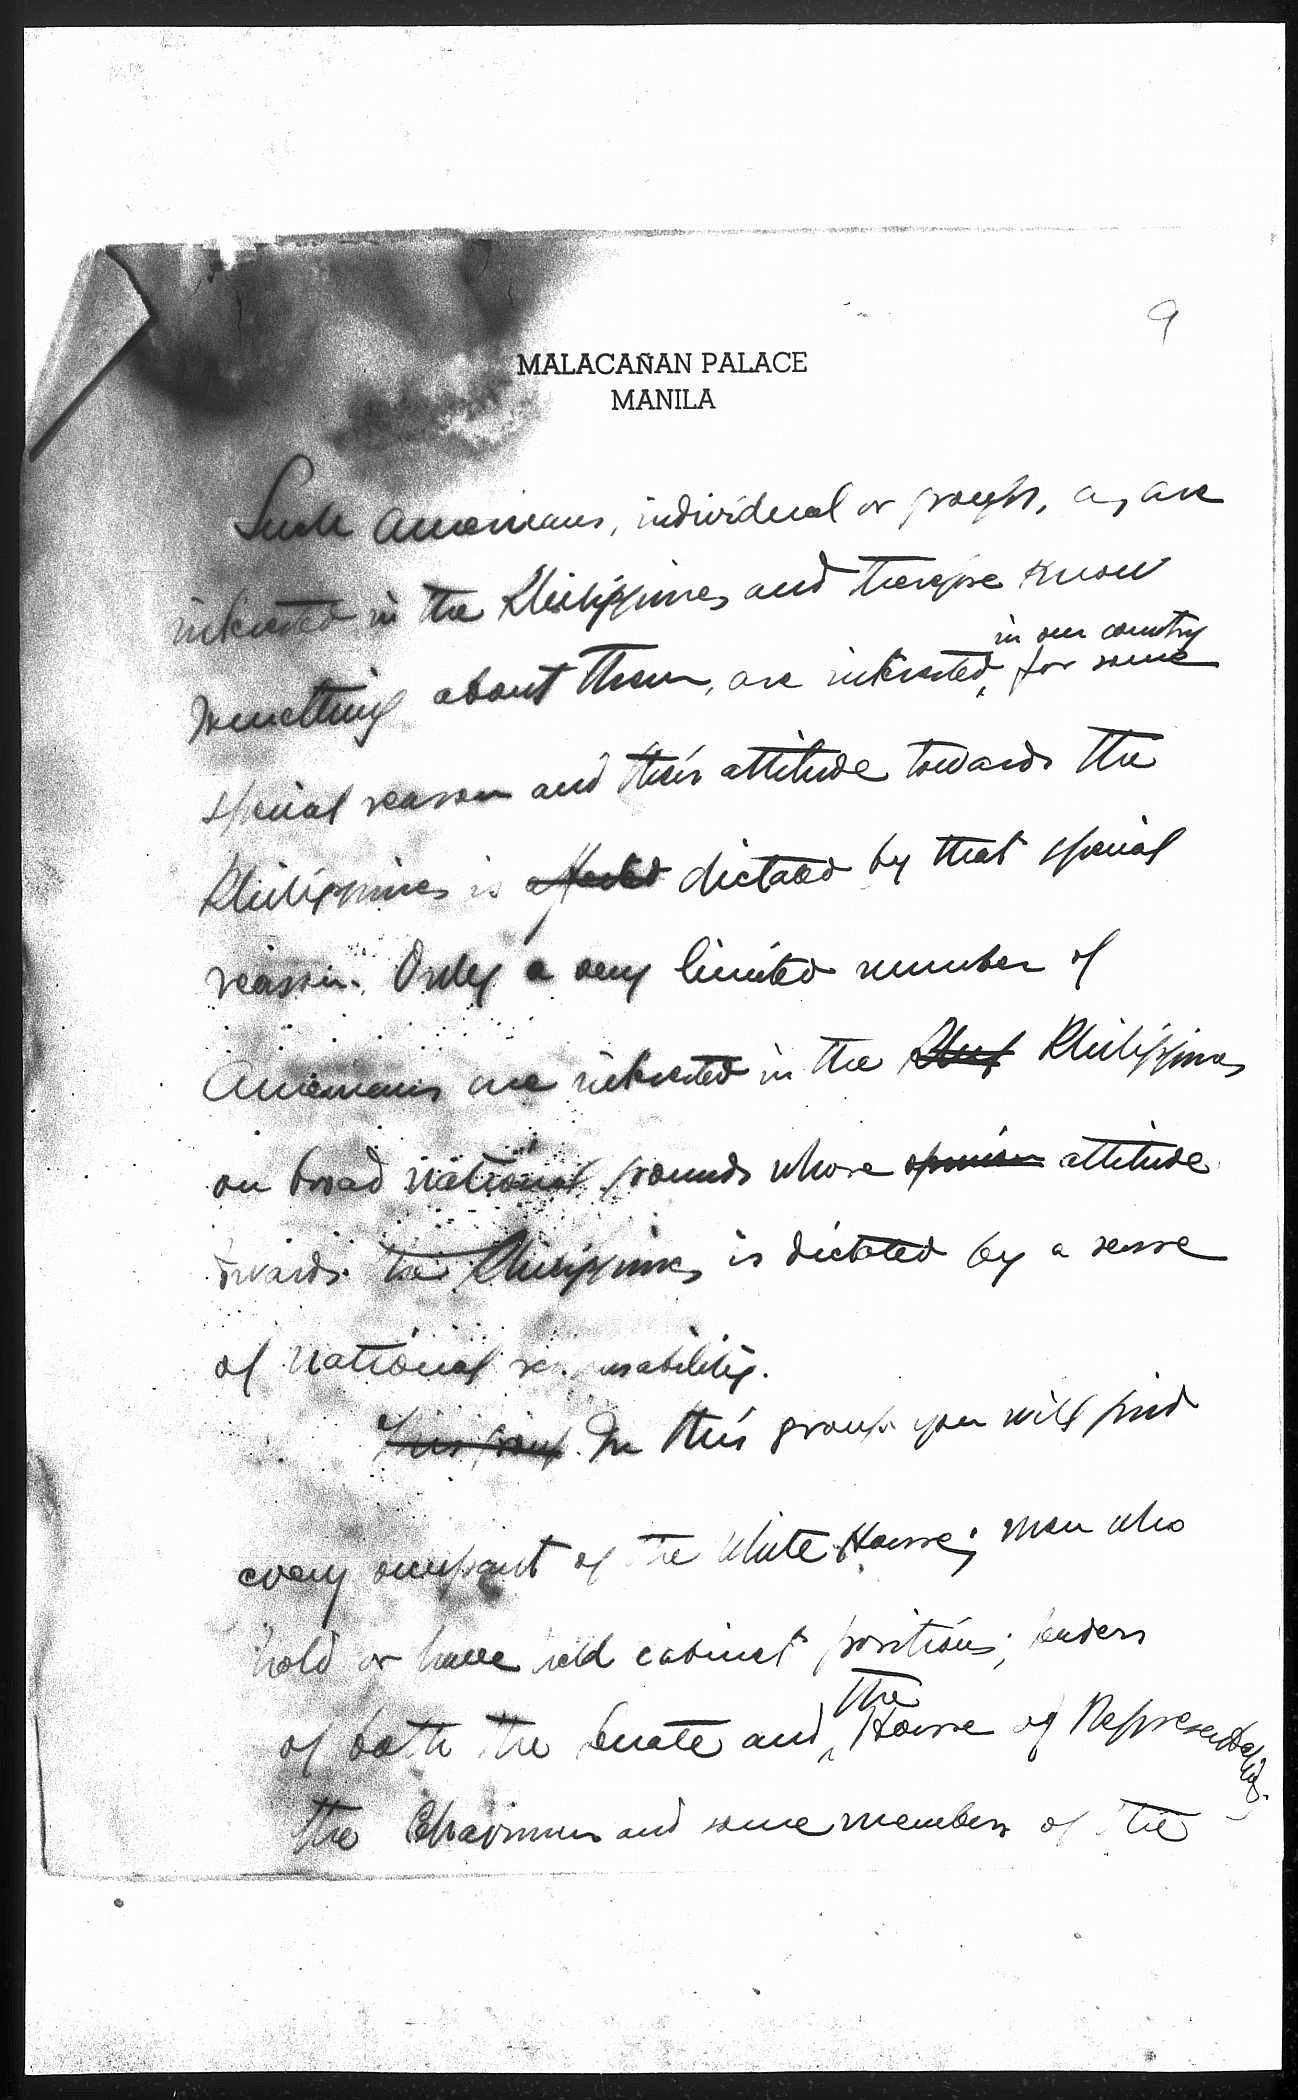 9
MALACAÑAN PALACE
MANILA
Such Americans, individual or groups, as are
interested in the Philippines and therefore know
in our country
something about them, are interested, for some
special reason and their attitude towards the
Philippines is affected dictated by that special
reason. Only a very limited number of
Americans are interested in the Phil Philippines
on broad national grounds whose opinion attitude
towards the Philippines is dictated by a sense
of national responsability.
This group. In this group you will find
every occupant of the White House; men who
hold or have held cabinet positions; leaders
the
of both the Senate and House of Representatives.
the Chairmen and some members of the